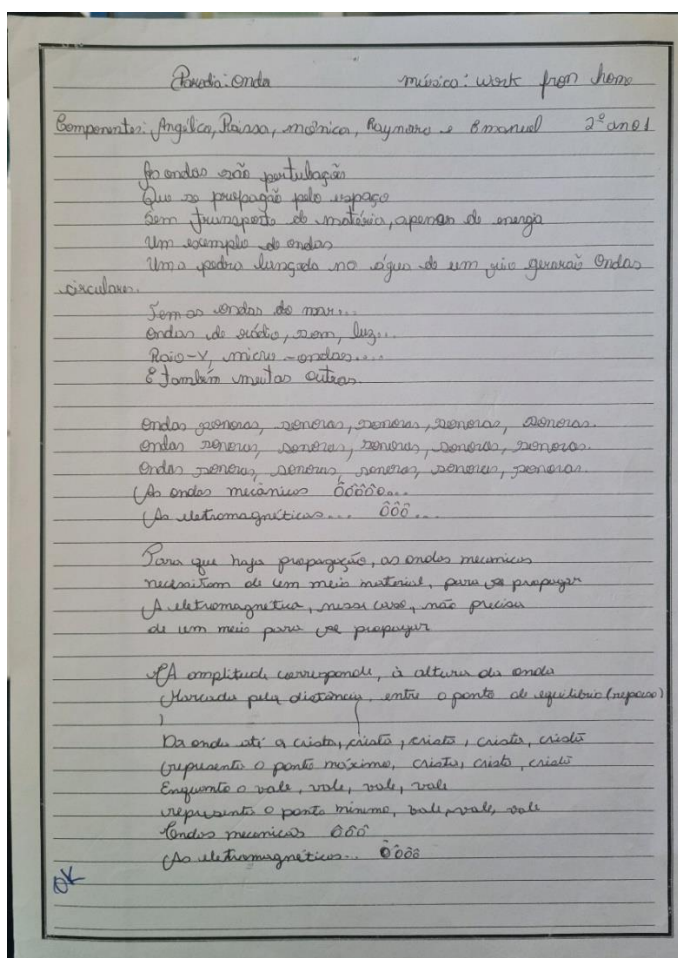 Parodia: Onda música: work fron home
Componentes: Angélica, Raissa, mônica, Raynara e Emanuel 2º ano 1
As ondas são pertubação
Que se propagão pelo espaço
Sem transporte de matéria, apenas de energia
Um exemplo de ondas
Uma pedra lançada no água de um rio geraraõ Ondas
circulares.
Temos ondas do mar...
ondas de rádio, som, luz...
Raio-X, micro-ondas....
E também muitas outras.
Ondas sonoras, sonoras, sonoras, sonoras, sonoras.
ondas sonoras, sonoras, sonoras, sonoras, sonoras.
Ondas sonoras, sonoras, sonoras, sonoras, sonoras.
As ondas mecânicas ôôôôo...
As eletromagnéticas... ôôô...
Para que haja propagação, as ondas mecanicas
necessitam de um meio material, para se propagar
A eletromagnetica, nesse caso, não precisa
de um meio para se propagar
A amplitude corresponde, à altura da onda
Marcada pela distância, entre o ponto de equilibrio (repouso)
)
Da onda até a crista, crista, crista, crista, crista
representa o ponto máximo, crista, crista, crista
Enquanto o vale, vale, vale, vale
representa o ponto mínimo, vale, vale, vale
Ondas mecanicas ôôô
As eletromagnéticas... ôôôô
OK